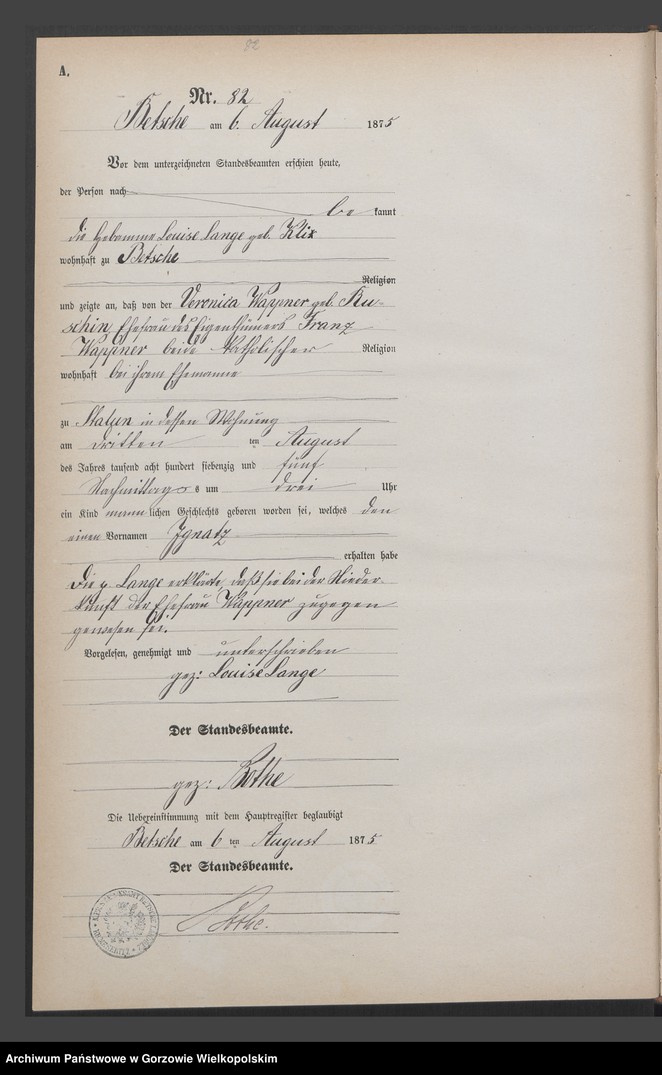 82
A.
Nr. 82
Betsche am 6. August 1875
Vor dem unterzeichneten Standesbeamten erschien heute,
der Person nach
be kannt
die Hebamme Louise Lange geb. Klix
wohnhaft zu Betsche
Religion
und zeigte an, daß von der Veronica Wappner geb. Ru-
schin, Ehefrau des Eigenthümers Franz
Wappner beide katholischer Religion
wohnhaft bei ihrem Ehemanne
zu Stalun in dessen Wohnung
am dritten ten August
des Jahres tausend acht hundert siebenzig und fünf
Nachmittags um drei Uhr
ein Kind männlichen Geschlechts geboren worden sei, welches den
einen Vornamen Ignatz
erhalten habe
Die p. Lange erklärte, daß sie bei der Nieder-
kunft der Ehefrau Wappner zugegen
gewesen sei.
Vorgelesen, genehmigt und unterschrieben
gez: Louise Lange
Der Standesbeamte.
gez: Bothe
Die Uebereinstimmung mit dem Hauptregister beglaubigt
Betsche am 6 ten August 1875
Der Standesbeamte.
Bothe.
Archiwum Państwowe w Gorzowie Wielkopolskim